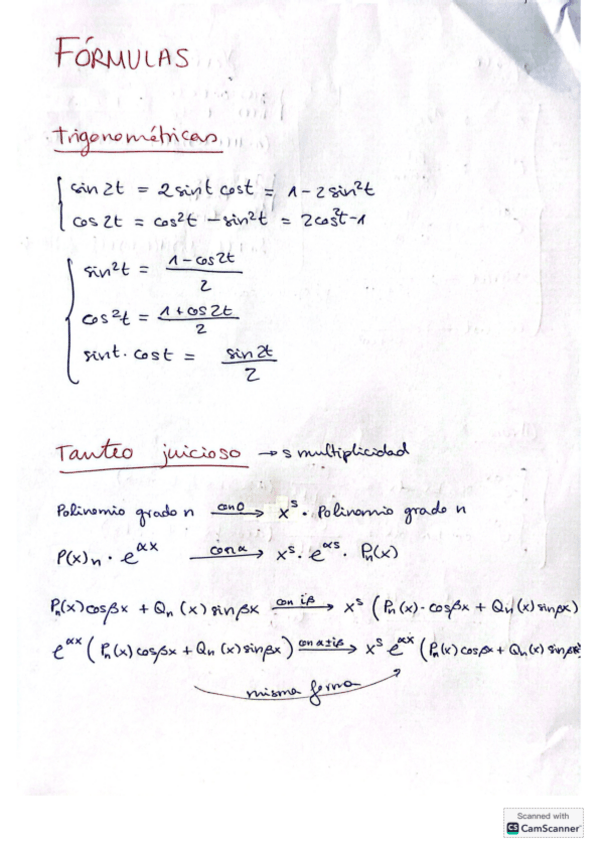 FÓRMULAS
Trigonométricas
sin 2t = 2 sint cost = 1 - 2 sin²t
cos 2t = cos²t - sin²t = 2cos²t - 1
sin²t = (1 - cos2t)/2
cos²t = (1 + cos2t)/2
sint · cost = sin 2t/2
Tanteo juicioso → s multiplicidad
Polinomio grado n con 0→ xˢ · Polinomio grado n
P(x)ₙ · e^αx con α→ xˢ · e^αs · Pₙ(x)
Pₙ(x) cosβx + Qₙ(x) sinβx con iβ→ xˢ (Pₙ(x) · cosβx + Qₙ(x) sinβx)
e^αx (Pₙ(x) cosβx + Qₙ(x) sinβx) con α±iβ→ xˢ e^αx (Pₙ(x) cosβx + Qₙ(x) sinβx
misma forma
Scanned with
CS CamScanner